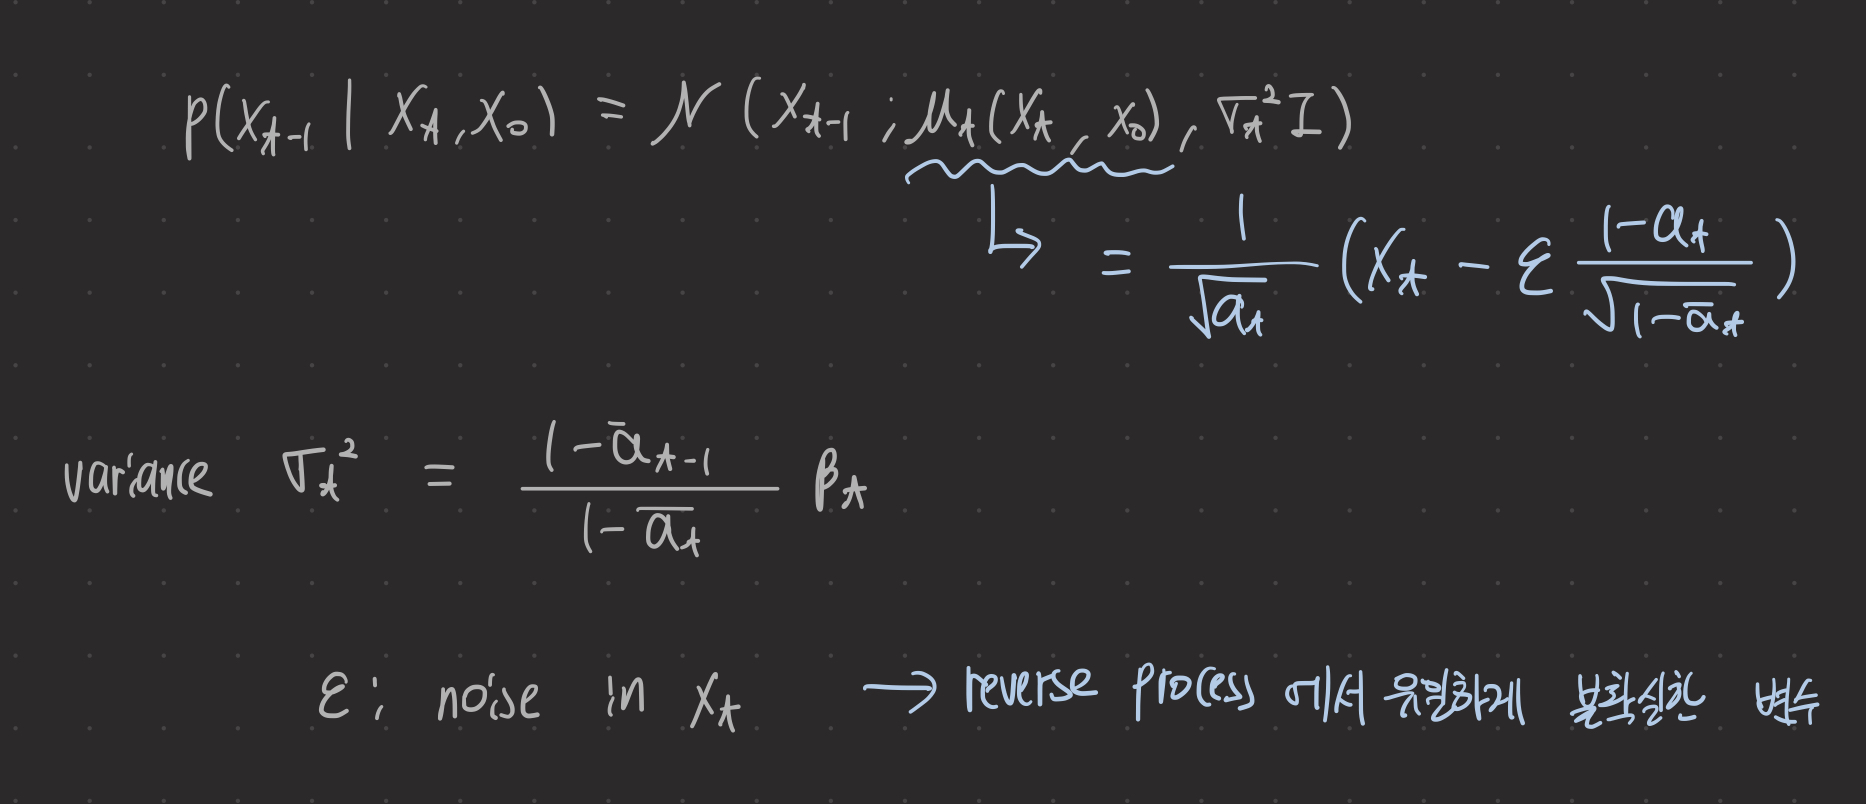 p(x_{t-1} | x_t, x_0) = 𝒩(x_{t-1} ; μ_t(x_t, x_0), σ_t² I)
↳ = \frac{1}{\sqrt{α_t}} (x_t - ε \frac{1-α_t}{\sqrt{1-\bar{α}_t}})
variance σ_t² = \frac{1-\bar{α}_{t-1}}{1-\bar{α}_t} β_t
ε : noise in x_t → reverse process 에서 유일하게 불확실한 변수